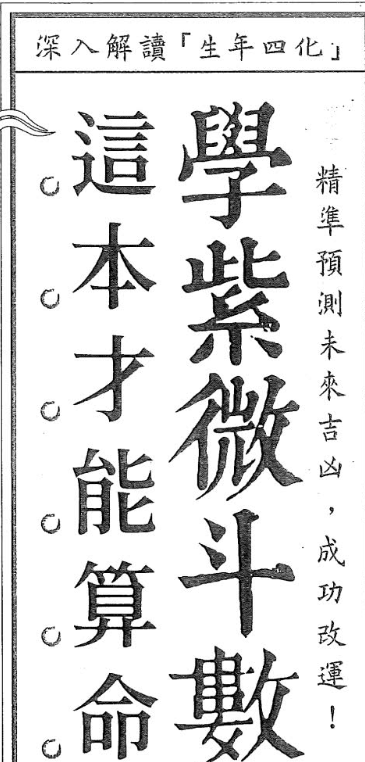 深入解讀「生年四化」
精準預測未來吉凶，成功改運！
學紫微斗數
這本才能算命